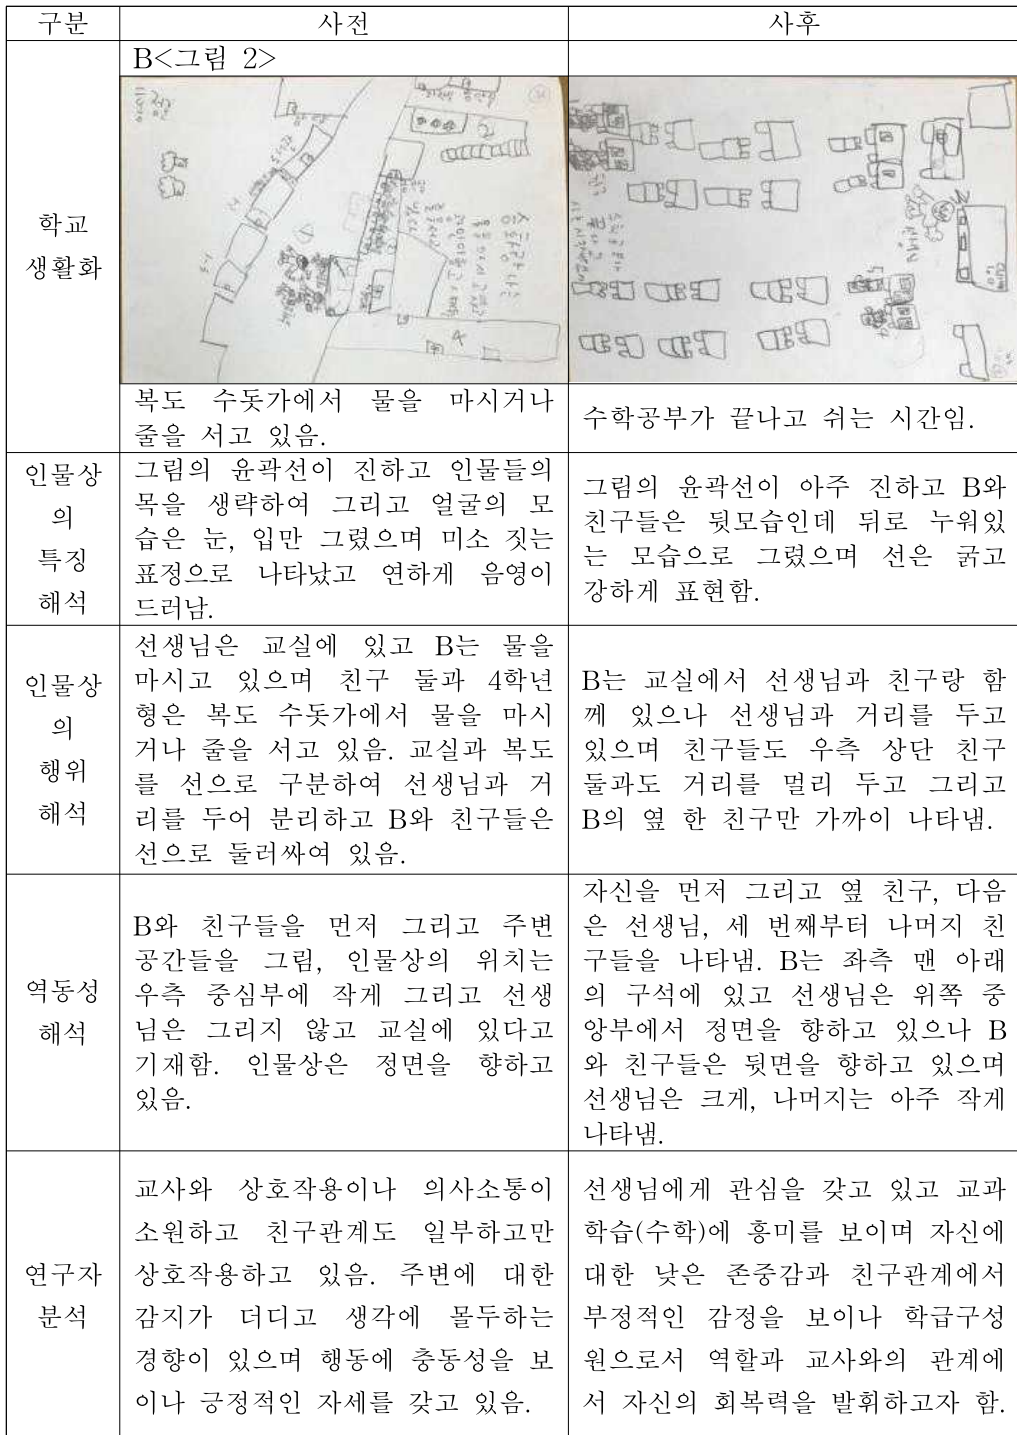 구분
사전
사후
B<그림 2>
학교
생활화
복도 수돗가에서 물을 마시거나
줄을 서고 있음.
수학공부가 끝나고 쉬는 시간임.
인물상
의
특징
해석
그림의 윤곽선이 진하고 인물들의
목을 생략하여 그리고 얼굴의 모
습은 눈, 입만 그렸으며 미소 짓는
표정으로 나타났고 연하게 음영이
드러남.
그림의 윤곽선이 아주 진하고 B와
친구들은 뒷모습인데 뒤로 누워있
는 모습으로 그렸으며 선은 굵고
강하게 표현함.
인물상
의
행위
해석
선생님은 교실에 있고 B는 물을
마시고 있으며 친구 둘과 4학년
형은 복도 수돗가에서 물을 마시
거나 줄을 서고 있음. 교실과 복도
를 선으로 구분하여 선생님과 거
리를 두어 분리하고 B와 친구들은
선으로 둘러싸여 있음.
B는 교실에서 선생님과 친구랑 함
께 있으나 선생님과 거리를 두고
있으며 친구들도 우측 상단 친구
둘과도 거리를 멀리 두고 그리고
B의 옆 한 친구만 가까이 나타냄.
역동성
해석
B와 친구들을 먼저 그리고 주변
공간들을 그림, 인물상의 위치는
우측 중심부에 작게 그리고 선생
님은 그리지 않고 교실에 있다고
기재함. 인물상은 정면을 향하고
있음.
자신을 먼저 그리고 옆 친구, 다음
은 선생님, 세 번째부터 나머지 친
구들을 나타냄. B는 좌측 맨 아래
의 구석에 있고 선생님은 위쪽 중
앙부에서 정면을 향하고 있으나 B
와 친구들은 뒷면을 향하고 있으며
선생님은 크게, 나머지는 아주 작게
나타냄.
연구자
분석
교사와 상호작용이나 의사소통이
소원하고 친구관계도 일부하고만
상호작용하고 있음. 주변에 대한
감지가 더디고 생각에 몰두하는
경향이 있으며 행동에 충동성을 보
이나 긍정적인 자세를 갖고 있음.
선생님에게 관심을 갖고 있고 교과
학습(수학)에 흥미를 보이며 자신에
대한 낮은 존중감과 친구관계에서
부정적인 감정을 보이나 학급구성
원으로서 역할과 교사와의 관계에
서 자신의 회복력을 발휘하고자 함.